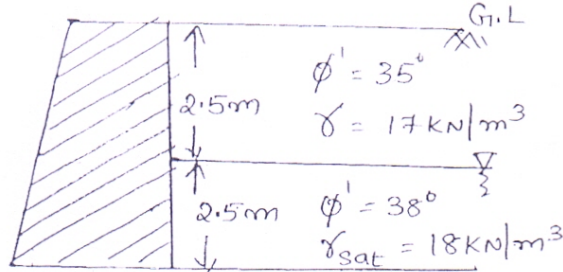 G.L
ϕ' = 35°
2.5m
γ = 17 KN/m³
2.5m
ϕ' = 38°
γsat = 18KN/m³